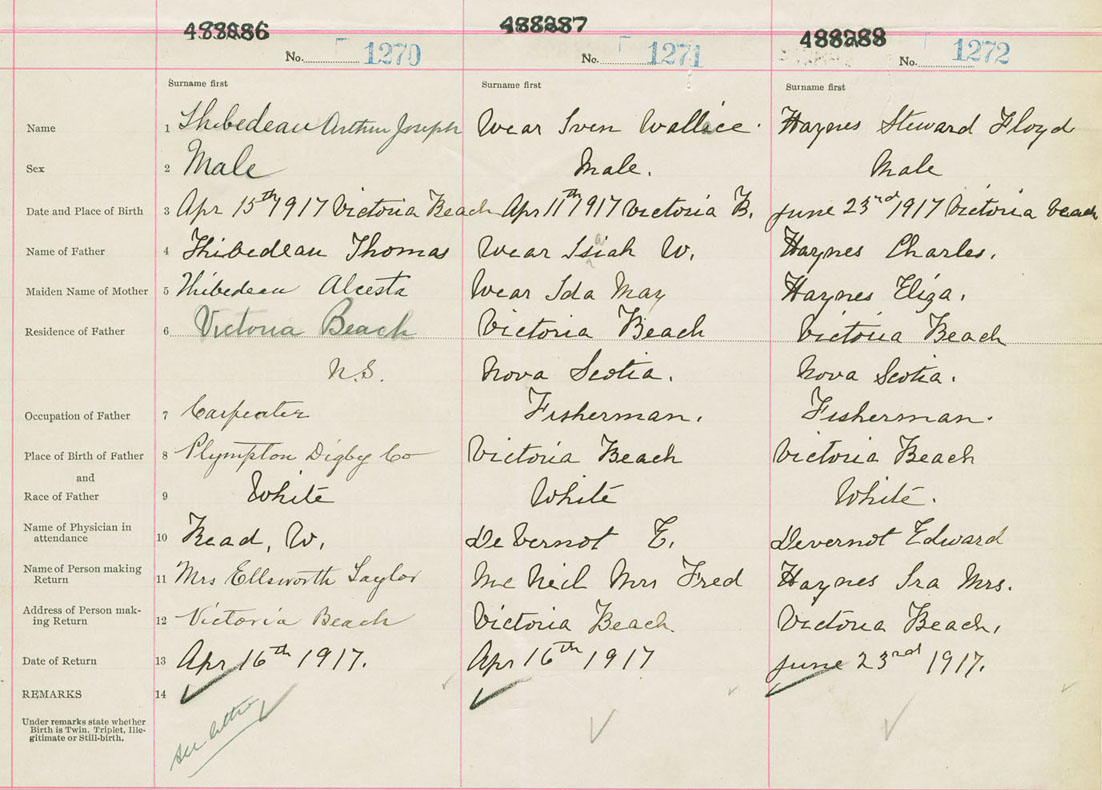 488286 488287 488288
No. 1270 No. 1271 No. 1272
Surname first Surname first Surname first
Name 1 Thibedeau Arthur Joseph Wear Iven Wallace. Haynes Steward Floyd
Sex 2 Male Male. Male
Date and Place of Birth 3 Apr 15th 1917 Victoria Beach Apr 11th 1917 Victoria B. June 23rd 1917 Victoria Beach
Name of Father 4 Thibedeau Thomas Wear Isiah W. Haynes Charles.
Maiden Name of Mother 5 Thibedeau Alcesta Wear Ida May Haynes Eliza.
Residence of Father 6 Victoria Beach Victoria Beach Victoria Beach
N.S. Nova Scotia. Nova Scotia.
Occupation of Father 7 Carpenter Fisherman. Fisherman.
Place of Birth of Father 8 Plympton Digby Co Victoria Beach Victoria Beach
and
Race of Father 9 White White White.
Name of Physician in
attendance 10 Read, W. DeVernot E. Devernot Edward
Name of Person making
Return 11 Mrs Ellsworth Taylor McNeil Mrs Fred Haynes Ira Mrs.
Address of Person mak-
ing Return 12 Victoria Beach Victoria Beach. Victoria Beach.
Date of Return 13 Apr 16th 1917. Apr 16th 1917 June 23rd 1917.
REMARKS 14
Under remarks state whether
Birth is Twin, Triplet, Ille-
gitimate or Still-birth.
see letter